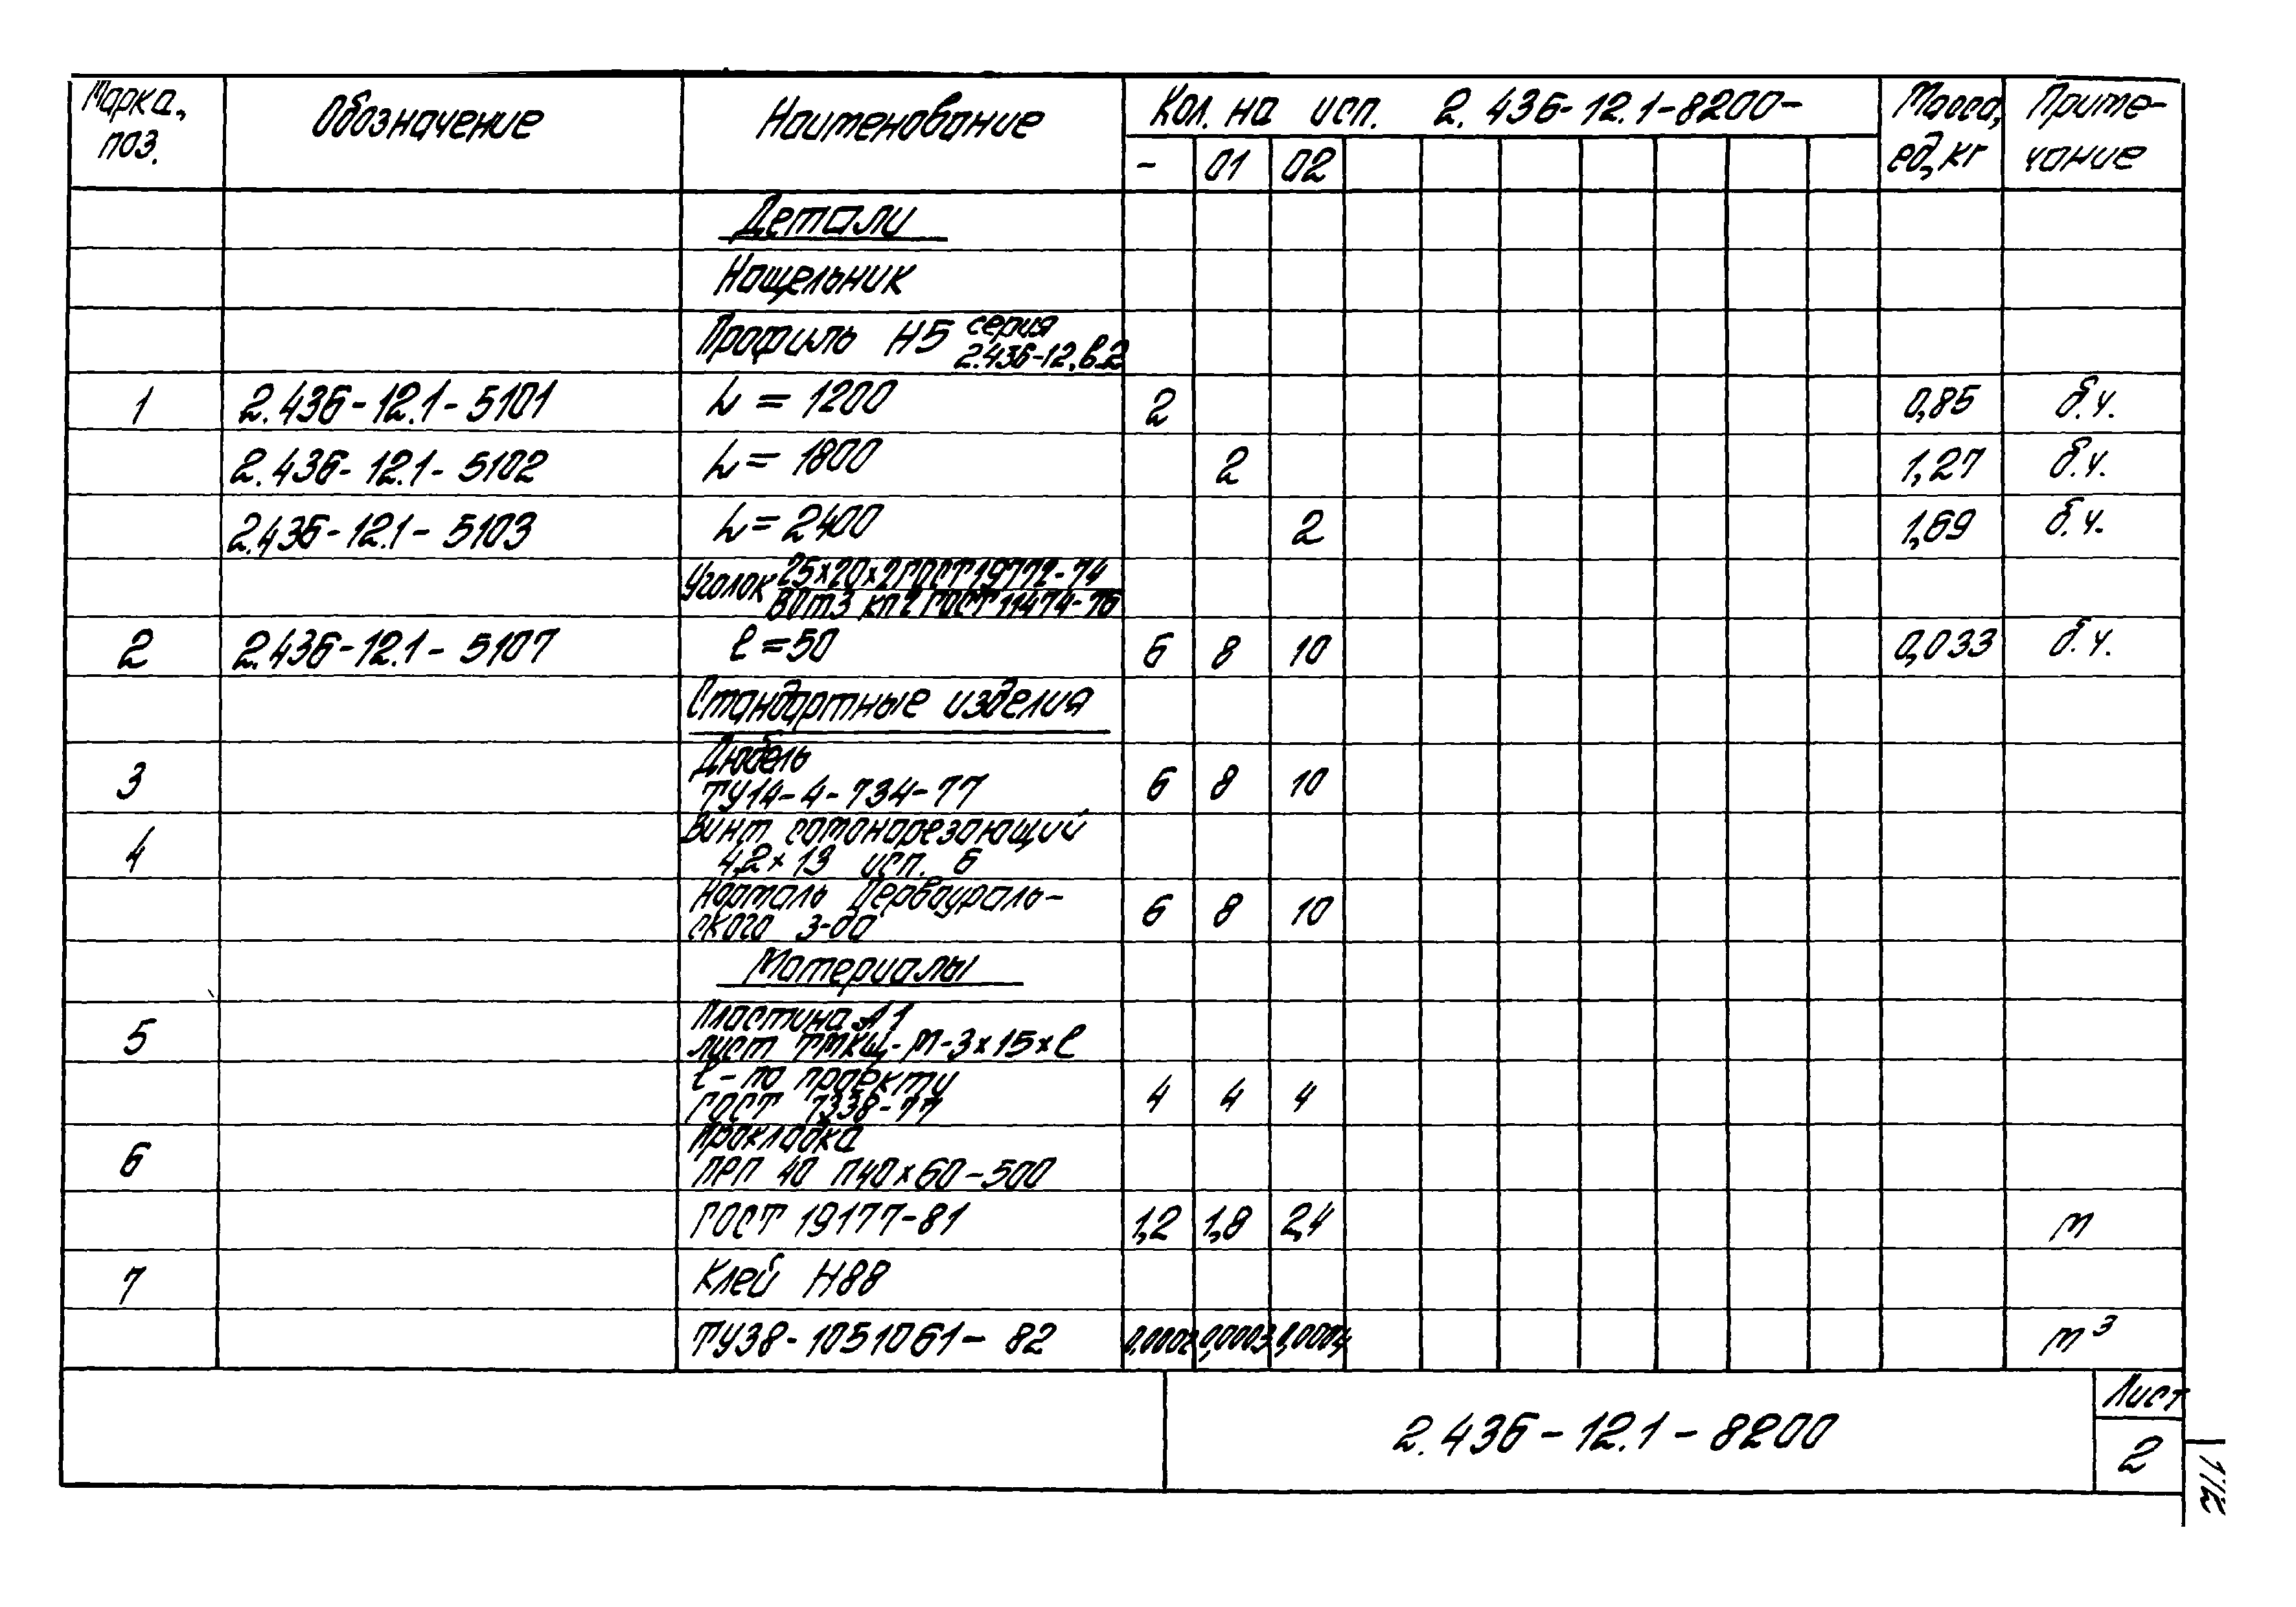 Марка, Обозначение Наименование Кол. на исп. 2.436-12.1-8200- Масса, Приме-
поз. - 01 02 ед, кг чание
Детали
Нащельник
Профиль Н5 серия
2.436-12, в.2
1 2.436-12.1-5101 L = 1200 2 0,85 б.ч.
2.436-12.1-5102 L = 1800 2 1,27 б.ч.
2.436-12.1-5103 L = 2400 2 1,69 б.ч.
Уголок 25×20×2 ГОСТ 19772-74
ВСт3 кп2 ГОСТ 11474-76
2 2.436-12.1-5107 ℓ = 50 6 8 10 0,033 б.ч.
Стандартные изделия
Дюбель
3 ТУ14-4-734-77 6 8 10
Винт самонарезающий
4 4,2×13 исп. 6
Нормаль Первоураль-
ского з-да 6 8 10
Материалы
Пластина А1
5 лист ТМКЩ-М-3×15×ℓ
ℓ - по проекту
ГОСТ 7338-77 4 4 4
Прокладка
6 ПРП 40 П40×60-500
ГОСТ 19177-81 1,2 1,8 2,4 м
7 Клей Н88
ТУ38-1051061-82 0,0002 0,0003 0,0004 м³
2.436-12.1-8200
Лист
2